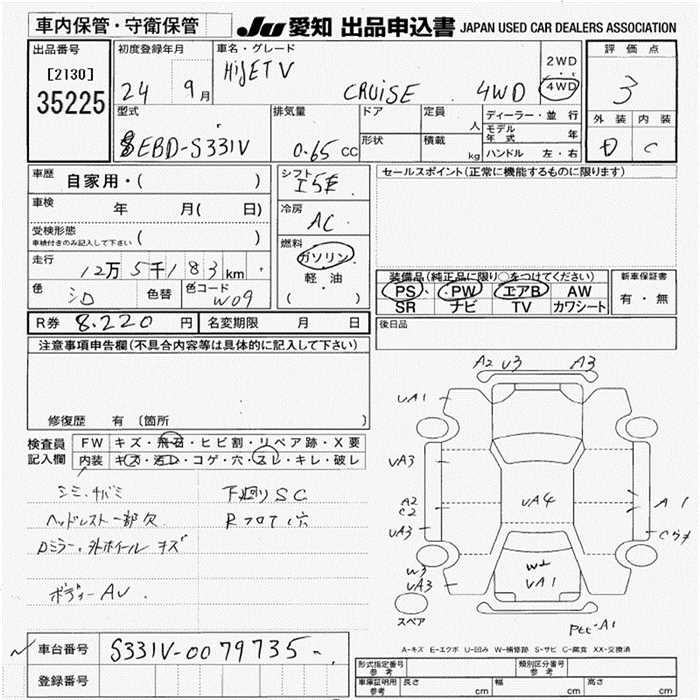 車内保管・守衛保管 JU 愛知 出品申込書 JAPAN USED CAR DEALERS ASSOCIATION
出品番号 初度登録年月 車名・グレード 評価点
[2130] HiJET V 2WD
35225 24 9月 CRUISE 4WD 4WD 3
型式 排気量 ドア 定員 人 ディーラー・並行 外装 内装
EBD-S331V 0.65 CC 形状 積載 kg モデル年式 年 D C
ハンドル 左・右
車歴 自家用・( ) シフト I5速 セールスポイント(正常に機能するものに限ります)
車検 年 月( 日) 冷房 AC
受検形態 車検付きのみ記入して下さい ( ) 燃料 ガソリン
走行 12万5千183km 軽・油 装備品(純正品に限り○をつけてください) 新車保証書
色 シロ 色替 色コード W09 ( ・ ) PS PW エアB AW 有・無
SR ナビ TV カワシート
R券 8.220円 名変期限 月 日 後日品
注意事項申告欄(不具合内容等は具体的に記入して下さい)
A2 U3 A3
UA1
修復歴 有 [箇所
検査員 FW キズ・飛石・ヒビ割・リペア跡・X要
記入欄 内装 キズ・汚レ・コゲ・穴・スレ・キレ・破レ
UA3
シミ・ナバミ 下廻りSC UA4
A2
C2 A1
ヘッドレスト一部欠 Rフロア穴
UA3
Dミラー・外ホイール キズ
W3 W2
UA3 UA1
ボディーAU
スペア A1
A-キズ E-エクボ U-凹み W-補修跡 S-サビ C-腐食 XX-交換済
車台番号 S331V-0079735
登録番号
形式指定番号 参考 類別区分番号 参考
車庫証明用 参考 長さ cm 幅 cm 高さ cm